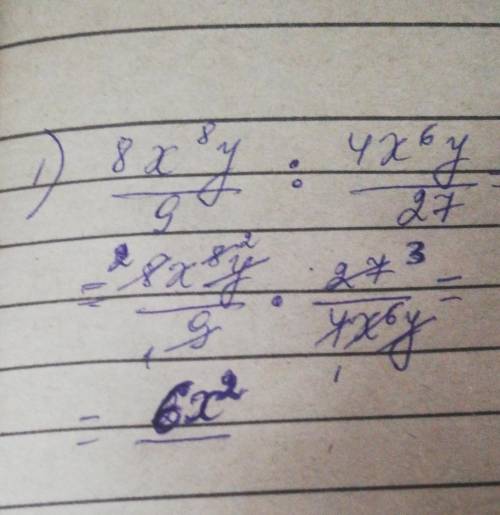 1) 8x⁸y/9 : 4x⁶y/27 =
= ² 8x⁸ ² y/9 ₁ · 27 ³/4x⁶y ₁ =
= 6x²